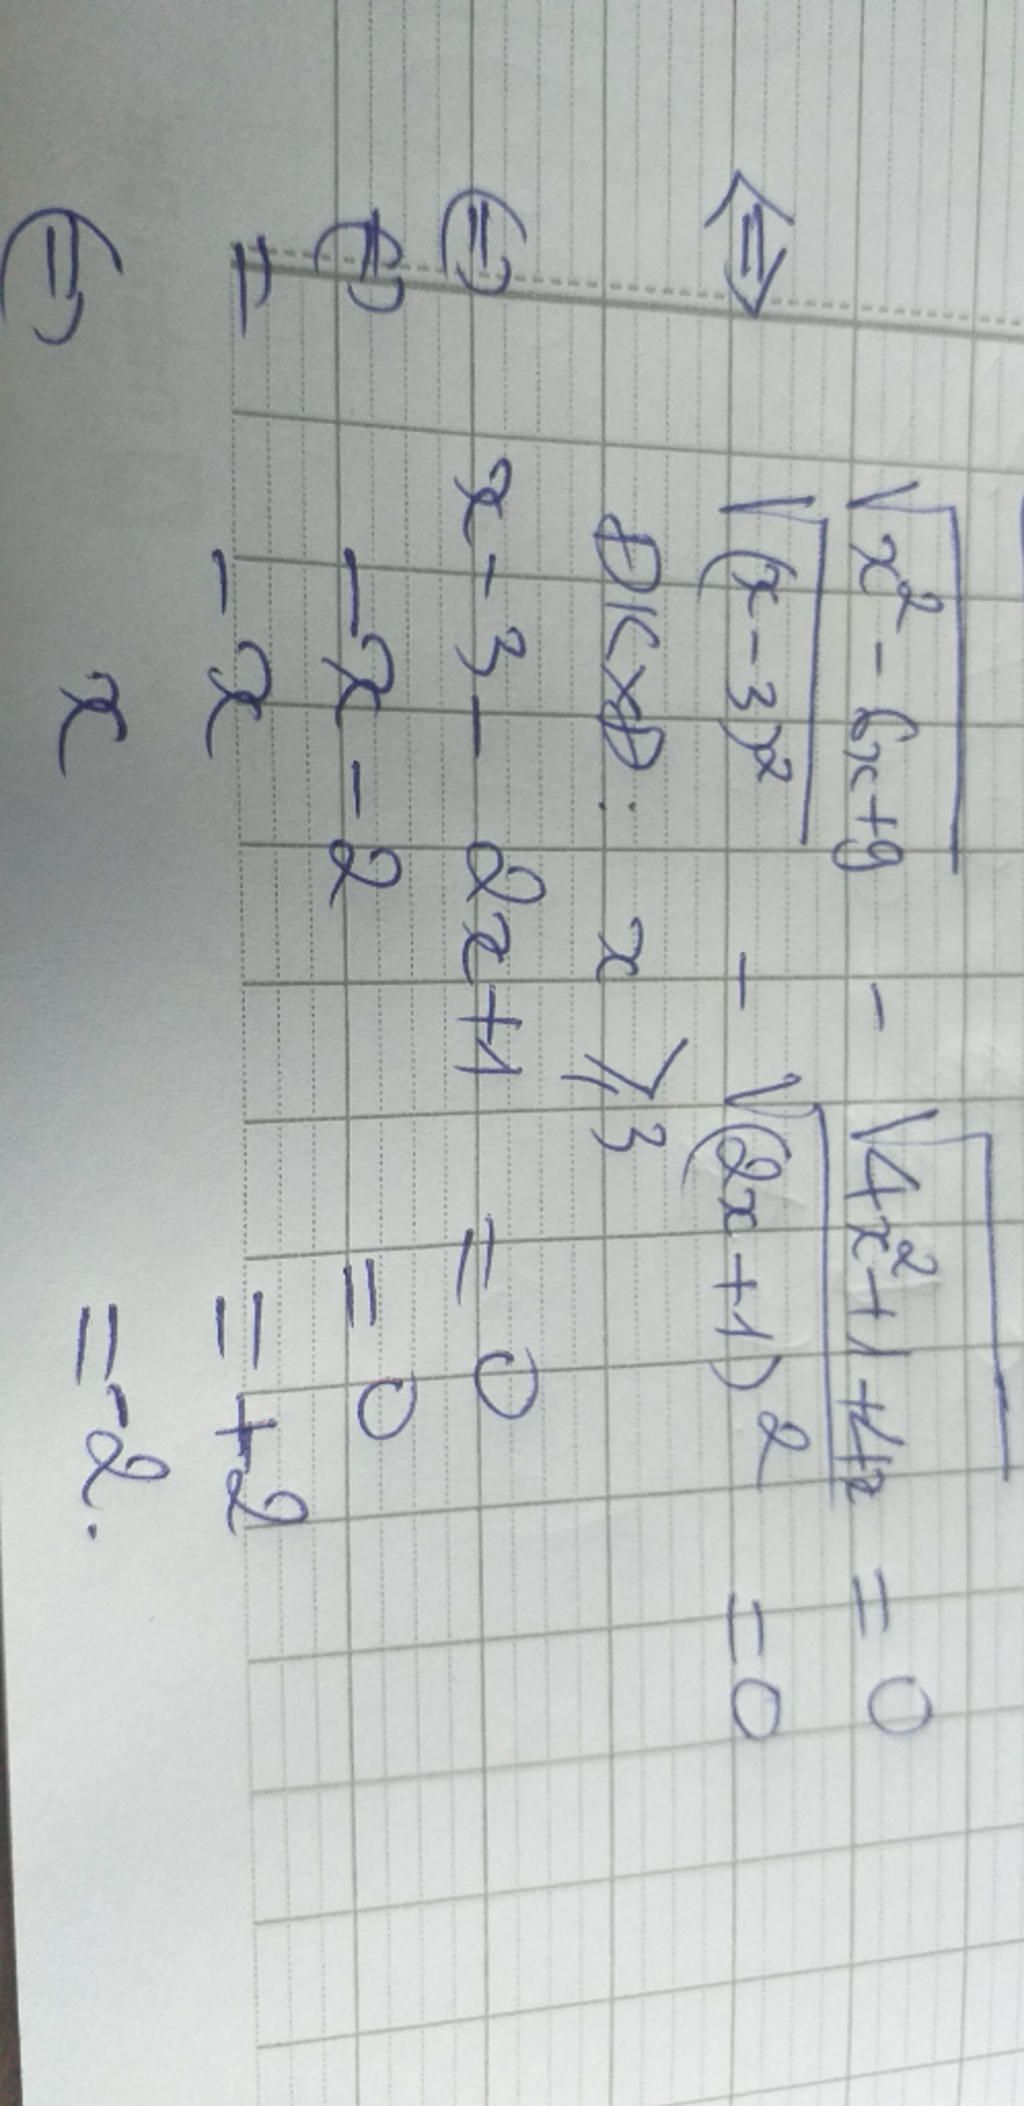 √x² - 6x + 9 - √4x² + 1 + 4x = 0
⇔ √(x - 3)² - √(2x + 1)² = 0
ĐKXĐ: x ⩾ 3
⇔ x - 3 - 2x + 1 = 0
⇔ - x - 2 = 0
= - x = + 2
⇔ x = - 2.